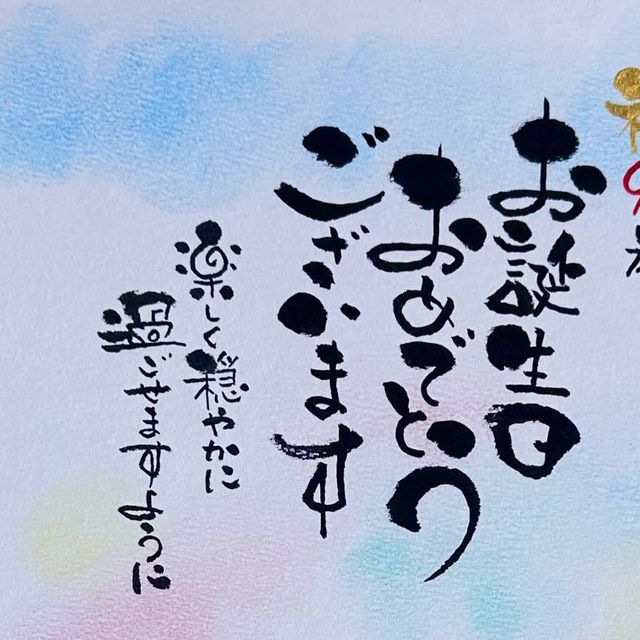 お誕生日
おめでとう
ございます
楽しく穏やかに
過ごせますように